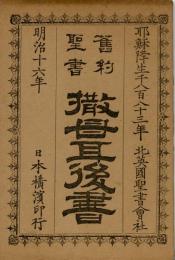 耶穌降生千八百八十三年 北英國聖書會社
舊約
聖書
撒母耳後書
明治十六年 日本橫濱印行